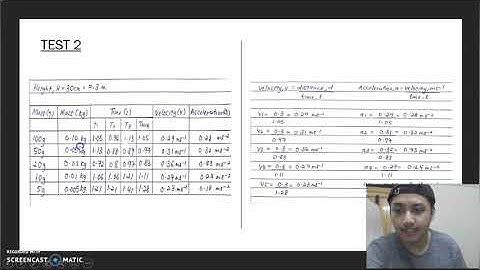 TEST 2
Height, H = 30cm = 0.3 m
Mass(g) Mass(kg) Time(s) Velocity(v) Acceleration(a)
T1 T2 T3 Tave
100g 0.10 kg 1.05 0.96 1.13 1.05 0.29 ms⁻¹ 0.28 ms⁻²
50g 1.13 0.97 0.31 ms⁻¹ 0.32 ms⁻²
20g 0.02 kg 0.72 0.8 0.83 0.36 ms⁻¹ 0.43 ms⁻²
10g 0.01 kg 1.06 1.06 1.21 1.11 0.27 ms⁻¹ 0.24 ms⁻²
5g 0.005 kg 1.21 1.21 1.41 1.28 0.23 ms⁻¹ 0.18 ms⁻²
Velocity, v = distance, d Acceleration, a = velocity, ms⁻¹
time, t time, t
v1 = 0.3 = 0.29 ms⁻¹ a1 = 0.29 = 0.28 ms⁻²
1.05 1.05
v2 = 0.3 = 0.31 ms⁻¹ a2 = 0.31 = 0.32 ms⁻²
0.97 0.97
v3 = 0.3 = 0.36 ms⁻¹
0.83 0.83
= 0.3 = 0.27 ms⁻¹
1.11 1.11
v5 = 0.3 = 0.23 ms⁻¹
1.28
RECORDED WITH
SCREENCAST MATIC